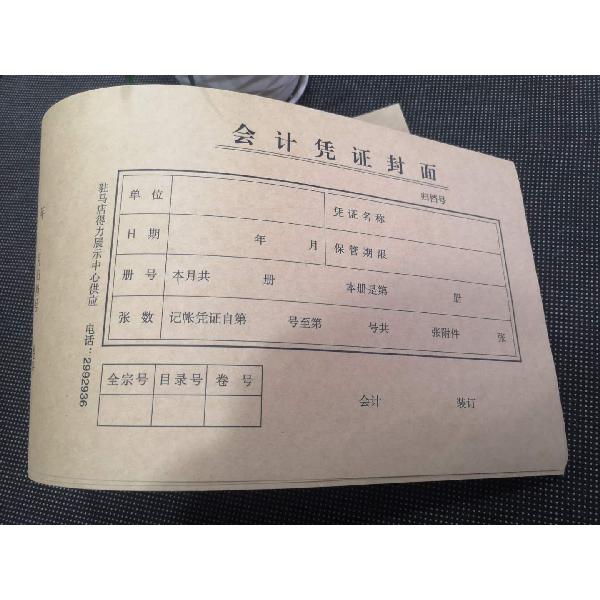 会计凭证封面
归档号
单位 凭证名称
日期 年 月 保管期限
册号 本月共 册 本册是第 册
张数 记帐凭证自第 号至第 号共 张附件 张
全宗号 目录号 卷号
会计 装订
驻马店得力展示中心供应 电话:2992936
年